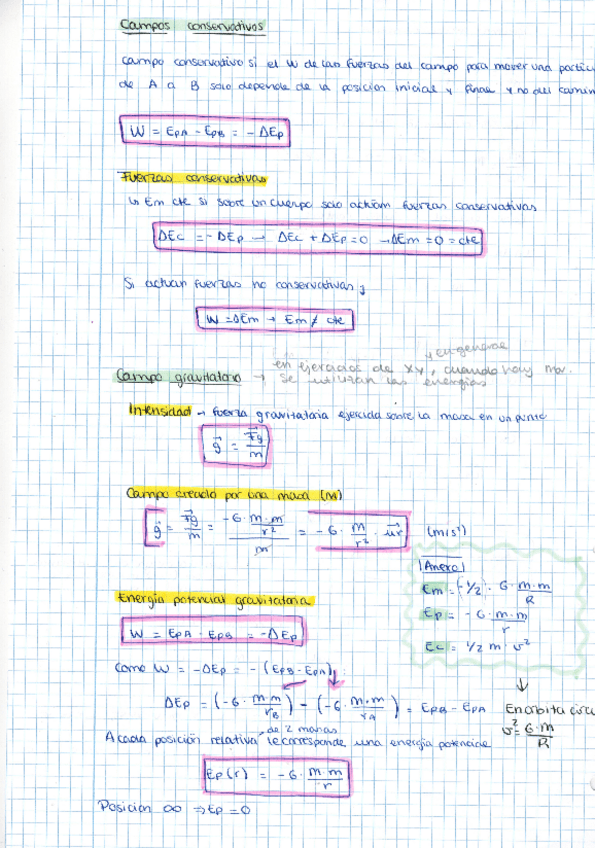 Campos conservativos
Campo conservativo si el W de las fuerzas del campo para mover una partic
de A a B solo depende de la posición inicial y final y no del camin
W = EpA - EpB = - ΔEp
Fuerzas conservativas
↳ Em cte si sobre un cuerpo solo actúan fuerzas conservativas
ΔEc = - ΔEp → ΔEc + ΔEp = 0 → ΔEm = 0 = cte
Si actúan fuerzas no conservativas;
W = ΔEm → Em ≠ cte
, en general
Campo gravitatorio → en ejercicios de , cuando hay mov.
se utilizan las energías
Intensidad → fuerza gravitatoria ejercida sobre la masa en un punto
g = Fg / m
Campo creado por una masa (M)
g = Fg / m = (-G · m·m / r²) / m = -G · m / r² · ur (m/s²)
Anexo
Em = (-1/2) · G · m·m / R
Energía potencial gravitatoria
Ep = - G · m·m / r
W = EpA - EpB = -ΔEp
Ec = 1/2 m · v²
como W = -ΔEp = - (EpB - EpA);
↓
ΔEp = (-G · m·m / rB) - (-G · m·m / rA) = EpB - EpA
En orbita circu
v² = G·M / R
de 2 masas
A cada posición relativa le corresponde una energía potencial
Ep(r) = -G · m·m / r
Posición ∞ ⇒ Ep = 0